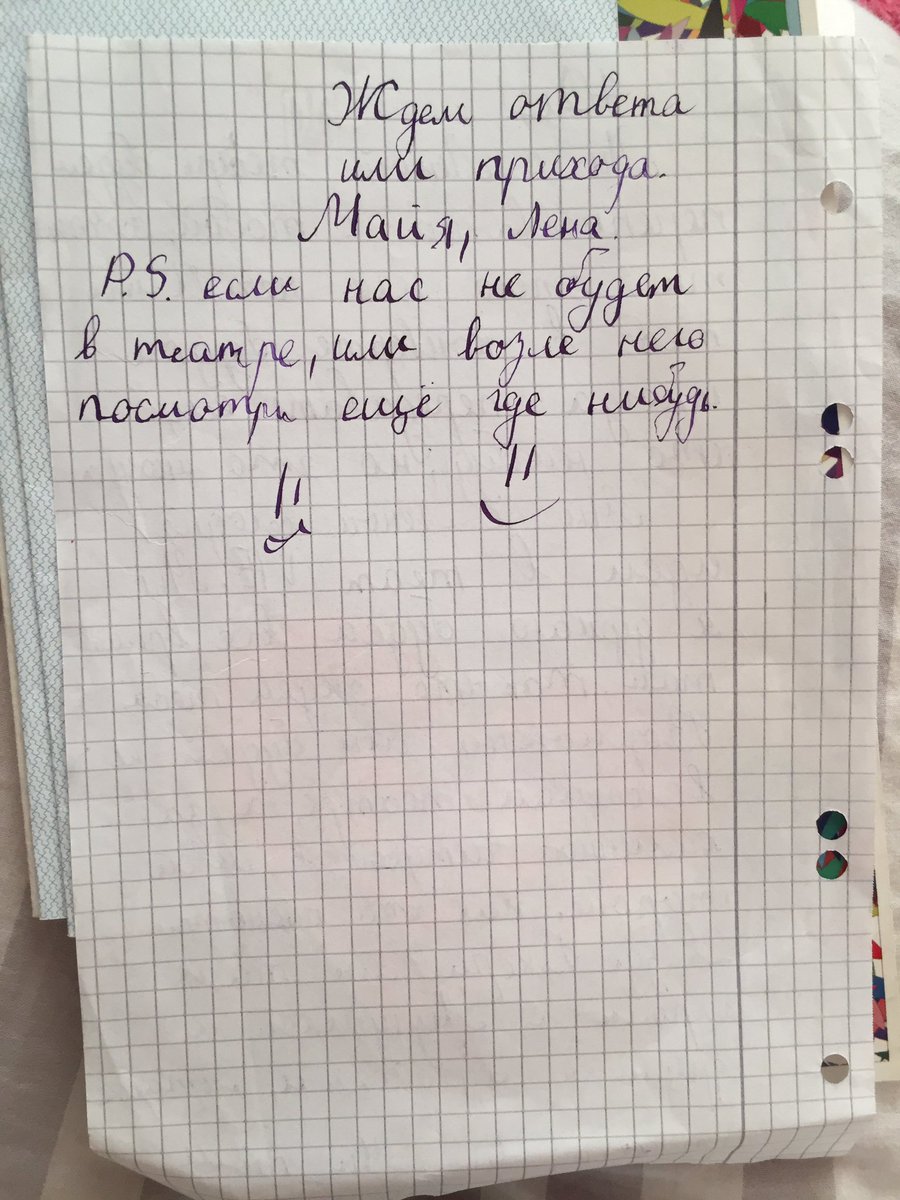 Ждем ответа
или прихода.
Майя, Лена.
P.S. если нас не будет
в театре, или возле него
посмотри ещё где нибудь.